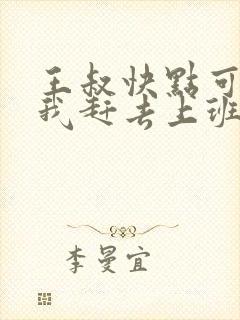 王叔快點可
我赶去上班
李曼宜